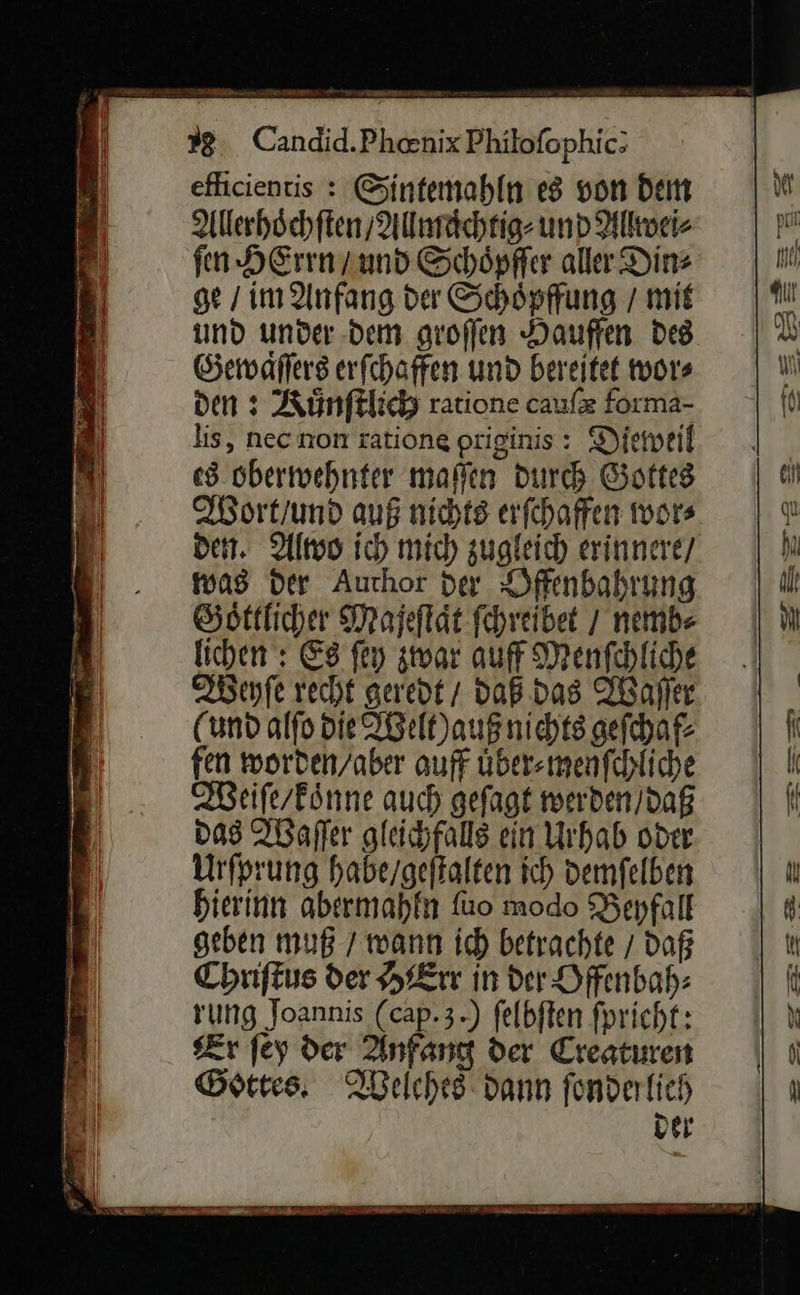 Candid. Phœnix Philoſophic:
efficientis : Sintemahln es von dem
Allerhoͤchſten/Allmaͤchtig⸗ und Allwei⸗
ſen HErrn / und Schoͤpffer aller Din⸗
ge / im Anfang der Schoͤpffung / mit
und under dem groſſen Hauffen des
Gewaͤſſers erſchaffen und bereitet wor⸗
den : Kuͤnſtlich ratione cauſæ forma-
lis, nec non ratione originis : Dieweil
es oberwehnter maſſen durch Gottes
Wort/und auß nichts erſchaffen wor⸗
den. Alwo ich mich zugleich erinnere/
was der Author der Offenbahrung
Goͤttlicher Majeſtaͤt ſchreibet / nemb⸗
lichen : Es ſey zwar auff Menſchliche
Weyſe recht geredt / daß das Waſſer
(und alſo die Welt)auß nichts geſchaf⸗
fen worden/aber auff uͤber⸗menſchliche
Weiſe/koͤnne auch geſagt werden/daß
das Waſſer gleichfalls ein Urhab oder
Urſprung habe/geſtalten ich demſelben
hierinn abermahln ſuo modo Beyfall
geben muß / wann ich betrachte / daß
Chriſtus der HErr in der Offenbah⸗
rung Joannis (cap. 3.) ſelbſten ſpricht:
Er ſey der Anfang der Creaturen
Gottes. Welches dann ſonderlich
der